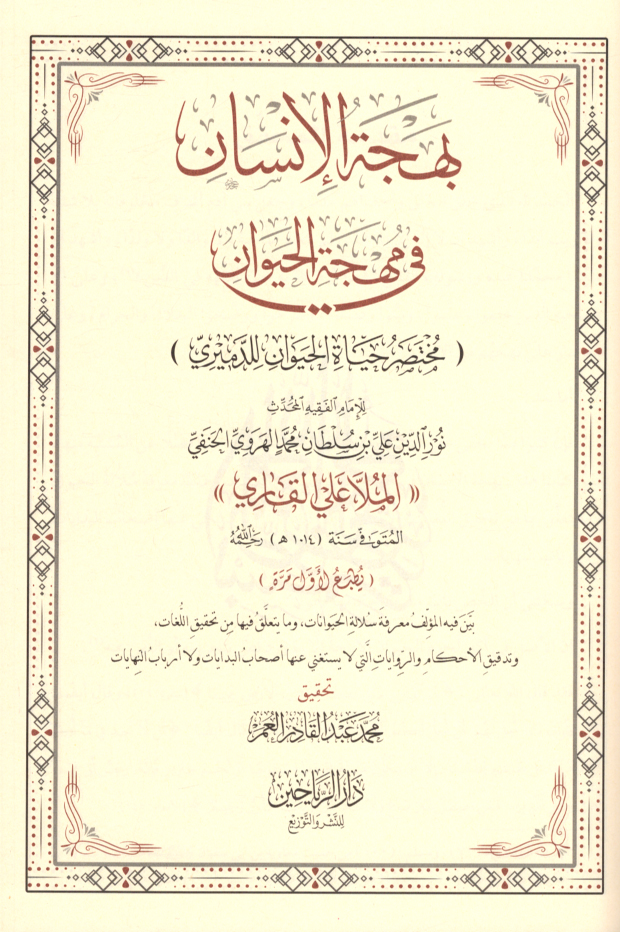 بَهْجَةُ الإِنْسَانِ
فِي مُهْجَةِ الحَيَوَانِ
( مُخْتَصَرُ حَيَاةِ الحَيَوَانِ لِلدَّمِيرِيِّ )
لِلإِمَامِ الفَقِيهِ المُحَدِّثِ
نُورِ الدِّينِ عَلِيِّ بْنِ سُلْطَان مُحَمَّدٍ الهَرَوِيِّ الحَنَفِيِّ
« المُلَّا عَلِي القَارِي »
المُتَوَفَّى سَنَة (١٠١٤ هـ) رَحِمَهُ اللهُ
( يُطْبَعُ لِأَوَّلِ مَرَّةٍ )
بَيَّن فيه المؤلِّفُ معرفةَ سُلالةِ الحَيَوانات، وما يتعلَّقُ فيها مِن تحقيقِ اللُّغات،
وتدقيقِ الأحكامِ والرِّواياتِ الَّتي لا يستغني عنها أصحابُ البدايات ولا أربابُ النِّهايات
تحقيق
مُحَمَّد عَبْدُ القَادِرِ العُمَر
دَارُ الرَّيَاحِين
لِلنَّشْرِ وَالتَّوْزِيعِ